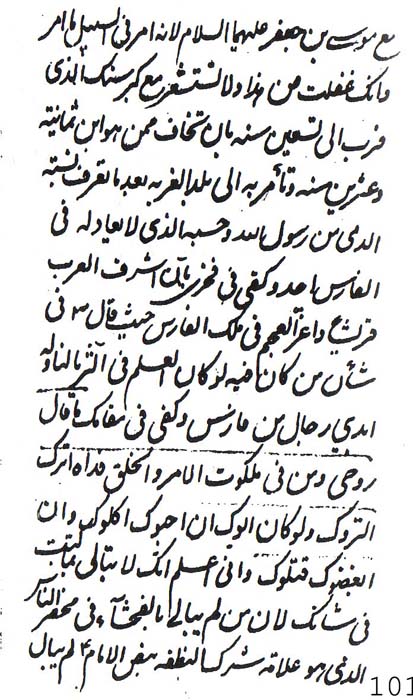 مع موسى بن جعفر عليهما السلام لانه امر فى السبيل بامر
وانك غفلت من هذا ولا تستشعر مع كبر سنك الذى
قرب الى تسعين سنه بان تخاف ممن هو ابن ثمانية
وعشرين سنه وتأمر به الى بلد الغربه بعد ما تعرف نسبته
الذى من رسول الله وحسبه الذى لا يعادله فى
الفارس احد وكفى فى فخرى بان اشرف العرب
قريش واعز العجم فى ملك الفارس حيث قال ص فى
شأن من كان فيه لو كان العلم فى الثريا لناوله
ايدي رجال من فارس وكفى فى مقامك ما قال
روحى ومن فى ملكوت الامر والخلق فداه اترك
التروك ولو كان ابوك ان احبوك اكلوك وان
ابغضوك قتلوك وانى اعلم انك لا تبالى بما كتبت
فى شانك لان من لم يبال بالفحشاء فى محضر الناس
الذى هو علامة شرك النطفه بنص الامام ع لم يبال
101